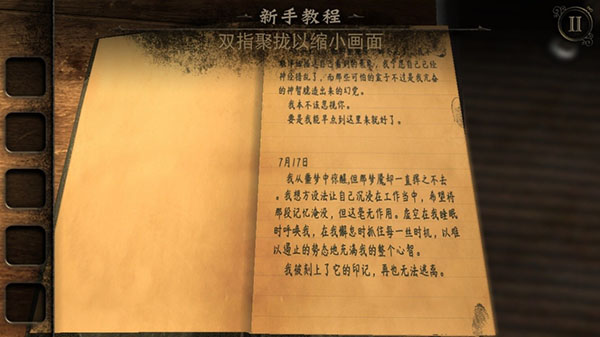 新手教程
双指聚拢以缩小画面
神经错乱了，而那些可怕的影子不过是我亢奋
的神智臆造出来的幻觉。
我本不该忽视你。
要是我能早点到这里来就好了。
7月17日
我从噩梦中惊醒,但那梦魇却一直挥之不去
。我想方设法让自己沉浸在工作当中，希望将
那段记忆淹没，但这是无作用。虚空在我睡眠
时呼唤我，在我懈怠时抓住每一丝时机，以难
以遏止的势态地充满我的整个心智。
我被刻上了它的印记，再也无法逃离。